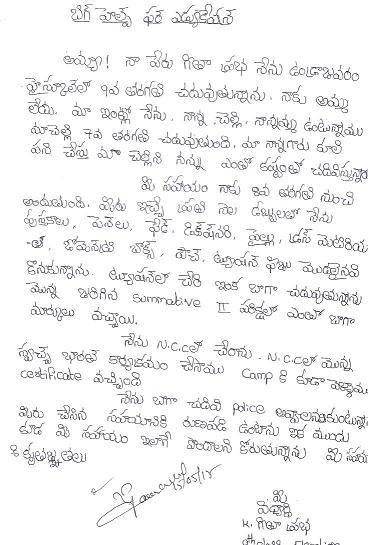 బిగ్ హెల్ప్ ఫర్ ఎడ్యుకేషన్
అయ్యా! నా పేరు గీతా ప్రభ నేను ఉండ్రాజవరం
హైస్కూల్‌లో 9వ తరగతి చదువుతున్నాను. నాకు అమ్మ
లేదు. మా ఇంట్లో నేను, నాన్న, చెల్లి, నాన్నమ్మ ఉంటున్నాము
మా చెల్లి 7వ తరగతి చదువుతుంది. మా నాన్నగారు కూలి
పని చేస్తు మా చెల్లిని నన్ను ఎంతో కష్టంతో చదివిస్తున్నారు
మీ సహాయం నాకు 8వ తరగతి నుంచి
అందుతుంది. మీరు ఇచ్చే ప్రతి నెల డబ్బులలో నేను
పుస్తకాలు, పెన్‌లు, ప్యాడ్, డిక్షనరి, డ్రస్ మెటిరియ
-ల్, జామెంట్రి బాక్స్, వాచ్, ట్యూషన్ ఫీజు మొదలైనవి
కొనుకున్నాను. ట్యూషన్‌లో చేరి ఇంక బాగా చదువుతున్నాను
మొన్న జరిగిన summative II పరీక్షల్లో ఎంతో బాగా
మార్కులు వచ్చాయి.
నేను N.C.C లో చేరాను. N.C.C లో మొన్న
స్వచ్ఛ భారత్ కార్యక్రమం చేసాము camp కి కూడా వెళ్ళాము
certificate వచ్చింది
నేను బాగా చదివి police అవ్వాలనుకుంటున్నాను
మీరు చేసిన సహాయానికి రుణపడి ఉంటాను ఇక ముందు
కూడ మీ సహాయం ఇలాగే పొందాలని కోరుతున్నాను మీ సహాయాని
కి కృతజ్ఞతలు
మీ
K. గీతా ప్రభ